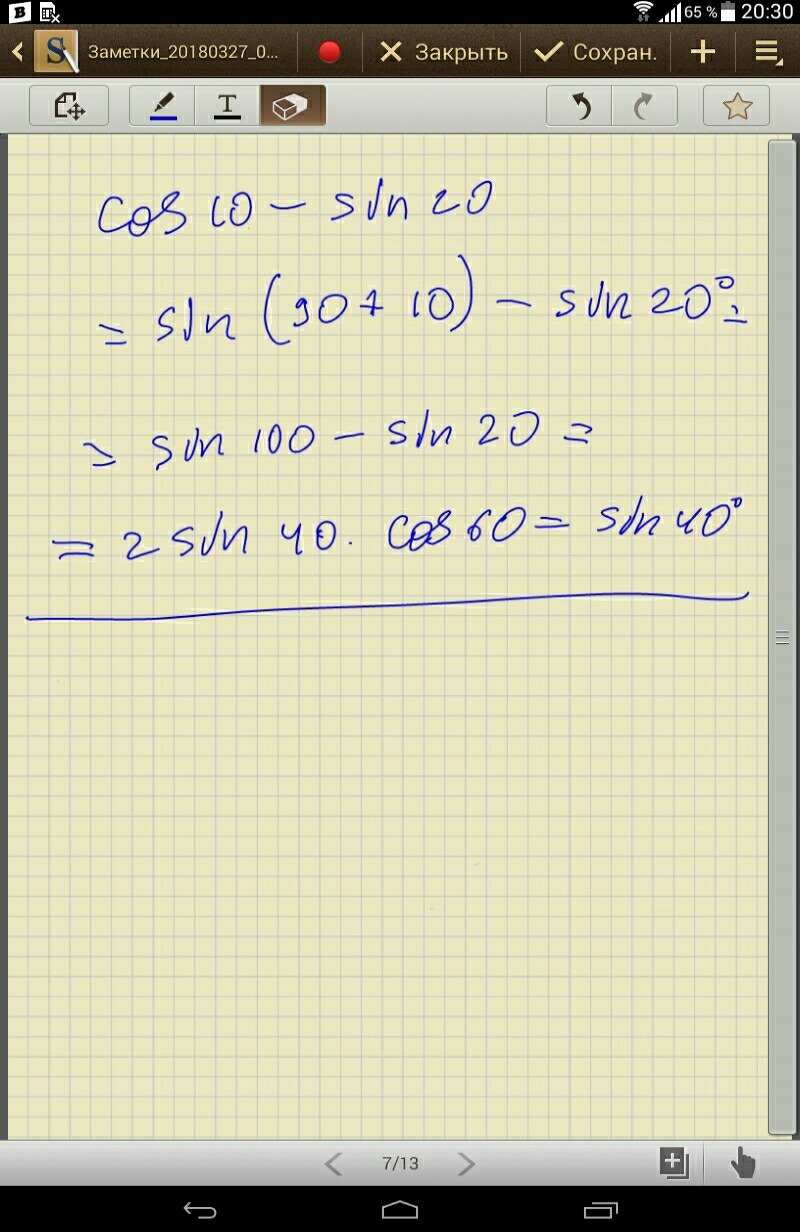 B 65 % 20:30
S Заметки_20180327_0... Закрыть Сохран. +
T
cos 10 - sin 20
= sin (90 + 10) - sin 20° =
= sin 100 - sin 20 =
= 2 sin 40 · cos 60 = sin 40°
7/13